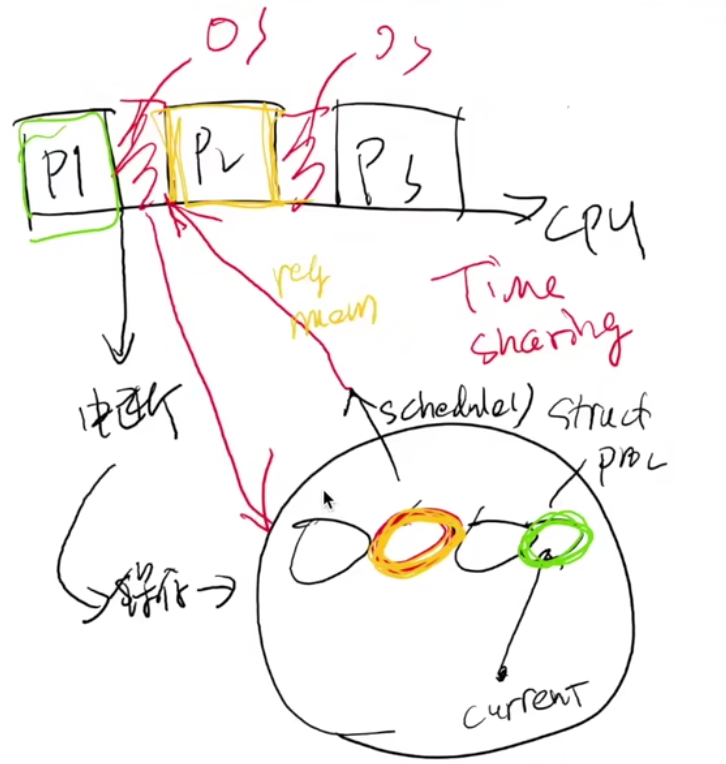 OS
OS
P1
P2
P3
CPU
reg
mem
Time
sharing
schedule()
struct
proc
保存
current